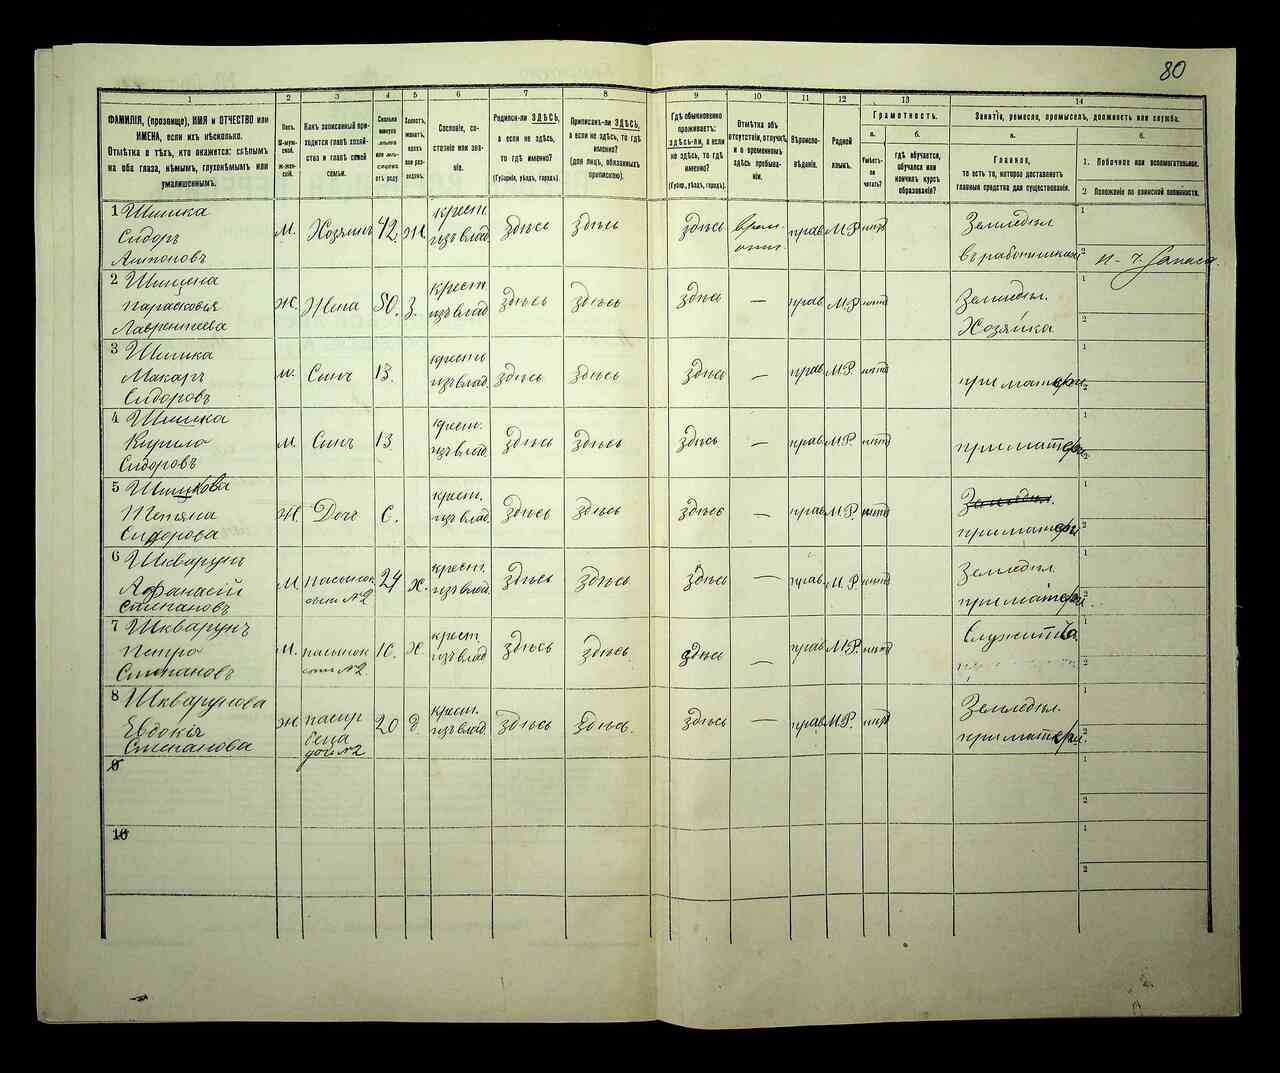 80
1 2 3 4 5 6 7 8 9 10 11 12 13 14
ФАМИЛІЯ, (прозвище), ИМЯ и ОТЧЕСТВО или
ИМЕНА, если ихъ нѣсколько.
Отмѣтка о тѣхъ, кто окажется: слѣпымъ
на оба глаза, нѣмымъ, глухонѣмымъ или
умалишеннымъ.
Полъ.
М-муж-
ской.
ж-жен-
скій.
Какъ записанный при-
ходится главѣ хозяй-
ства и главѣ своей
семьи.
Сколько
минуло
лѣтъ
или мѣ-
сяцевъ
отъ роду
Холостъ,
женатъ,
вдовъ
или раз-
веденъ.
Сословіе, со-
стояніе или зва-
ніе.
Родился-ли ЗДѢСЬ,
а если не здѣсь,
то гдѣ именно?
(Губернія, уѣздъ, городъ).
Приписанъ-ли ЗДѢСЬ,
а если не здѣсь, то гдѣ
именно?
(для лицъ, обязанныхъ
припискою).
Гдѣ обыкновенно
проживаетъ:
здѣсь-ли, а если
не здѣсь, то гдѣ
именно?
(Губер., уѣздъ, городъ).
Отмѣтка объ
отсутствіи, отлучкѣ
и о временномъ
здѣсь пребыва-
ніи.
Вѣроиспо-
вѣданіе.
Родной
языкъ.
Грамотность.
а. б.
Умѣетъ-
ли
читать?
гдѣ обучается,
обучался или
кончилъ курсъ
образованія?
Занятіе, ремесло, промыселъ, должность или служба.
а. б.
Главное,
то есть то, которое доставляетъ
главныя средства для существованія.
1. Побочное или вспомогательное.
2 Положеніе по воинской повинности.
1 Шишка
Сидоръ
Антоновъ
М. Хозяинъ 42. Ж. крест. изъ влад. здѣсь здѣсь здѣсь врем. отст. прав М.Р. нѣтъ
Земледѣл.
въ работникахъ
1
2
2 Шишкина
Парасковья
Лаврентьева
Ж. Жена 50. З. крест. изъ влад здѣсь здѣсь здѣсь — прав М.Р. нѣтъ
Земледѣл.
Хозяйка
1
2
3 Шишка
Макаръ
Сидоровъ
М. Сынъ 13. крестъ изъ влад. здѣсь здѣсь здѣсь — прав М.Р. нѣтъ
при матери
1
2
4 Шишка
Кирило
Сидоровъ
М. Сынъ 13 крест. изъ влад. здѣсь здѣсь здѣсь — прав М.Р. нѣтъ
при матери
1
2
5 Шишкова
Тетяна
Сидорова
Ж. Дочь крест. изъ влад. здѣсь здѣсь здѣсь — прав М.Р. нѣтъ
Земледѣл.
при матери
1
2
6 Шкварунъ
Афанасій
Степановъ
М. пасынок сынъ №2 24 Х. крест. изъ влад здѣсь здѣсь здѣсь — прав. М.Р. нѣтъ
Земледѣл.
при матери
1
2
7 Шкварунъ
Петро
Степановъ
М. пасынок сынъ №2. Х. крест. изъ влад здѣсь здѣсь здѣсь — прав М.Р. нѣтъ
1
2
8 Шкварунова
Евдокія
Степанова
Ж. падчерица дочь №2 20 Д. крест. изъ влад. здѣсь здѣсь. здѣсь — прав М.Р. нѣтъ
Земледѣл.
при матери.
1
2
9
1
2
10
1
2